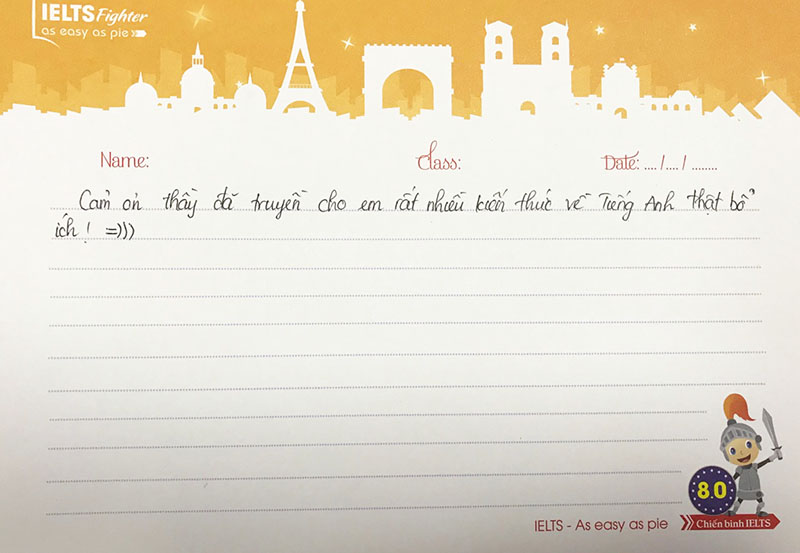 IELTS Fighter
as easy as pie
Name:
Class:
Date: .... / .... / ........
Cảm ơn thầy đã truyền cho em rất nhiều kiến thức về Tiếng Anh thật bổ
ích! =)))
8.0
IELTS - As easy as pie
Chiến binh IELTS